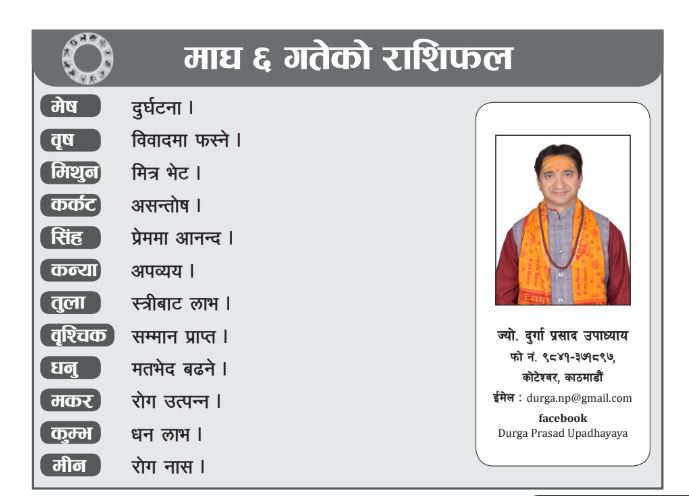 माघ ६ गतेको राशिफल
मेष दुर्घटना ।
वृष विवादमा फस्ने ।
मिथुन मित्र भेट ।
कर्कट असन्तोष ।
सिंह प्रेममा आनन्द ।
कन्या अपव्यय ।
तुला स्त्रीबाट लाभ ।
वृश्चिक सम्मान प्राप्त ।
धनु मतभेद बढने ।
मकर रोग उत्पन्न ।
कुम्भ धन लाभ ।
मीन रोग नास ।
ज्यो. दुर्गा प्रसाद उपाध्याय
फो नं. ९८४१-३७१८९७,
कोटेश्वर, काठमाडौं
ईमेल : durga.np@gmail.com
facebook
Durga Prasad Upadhayaya